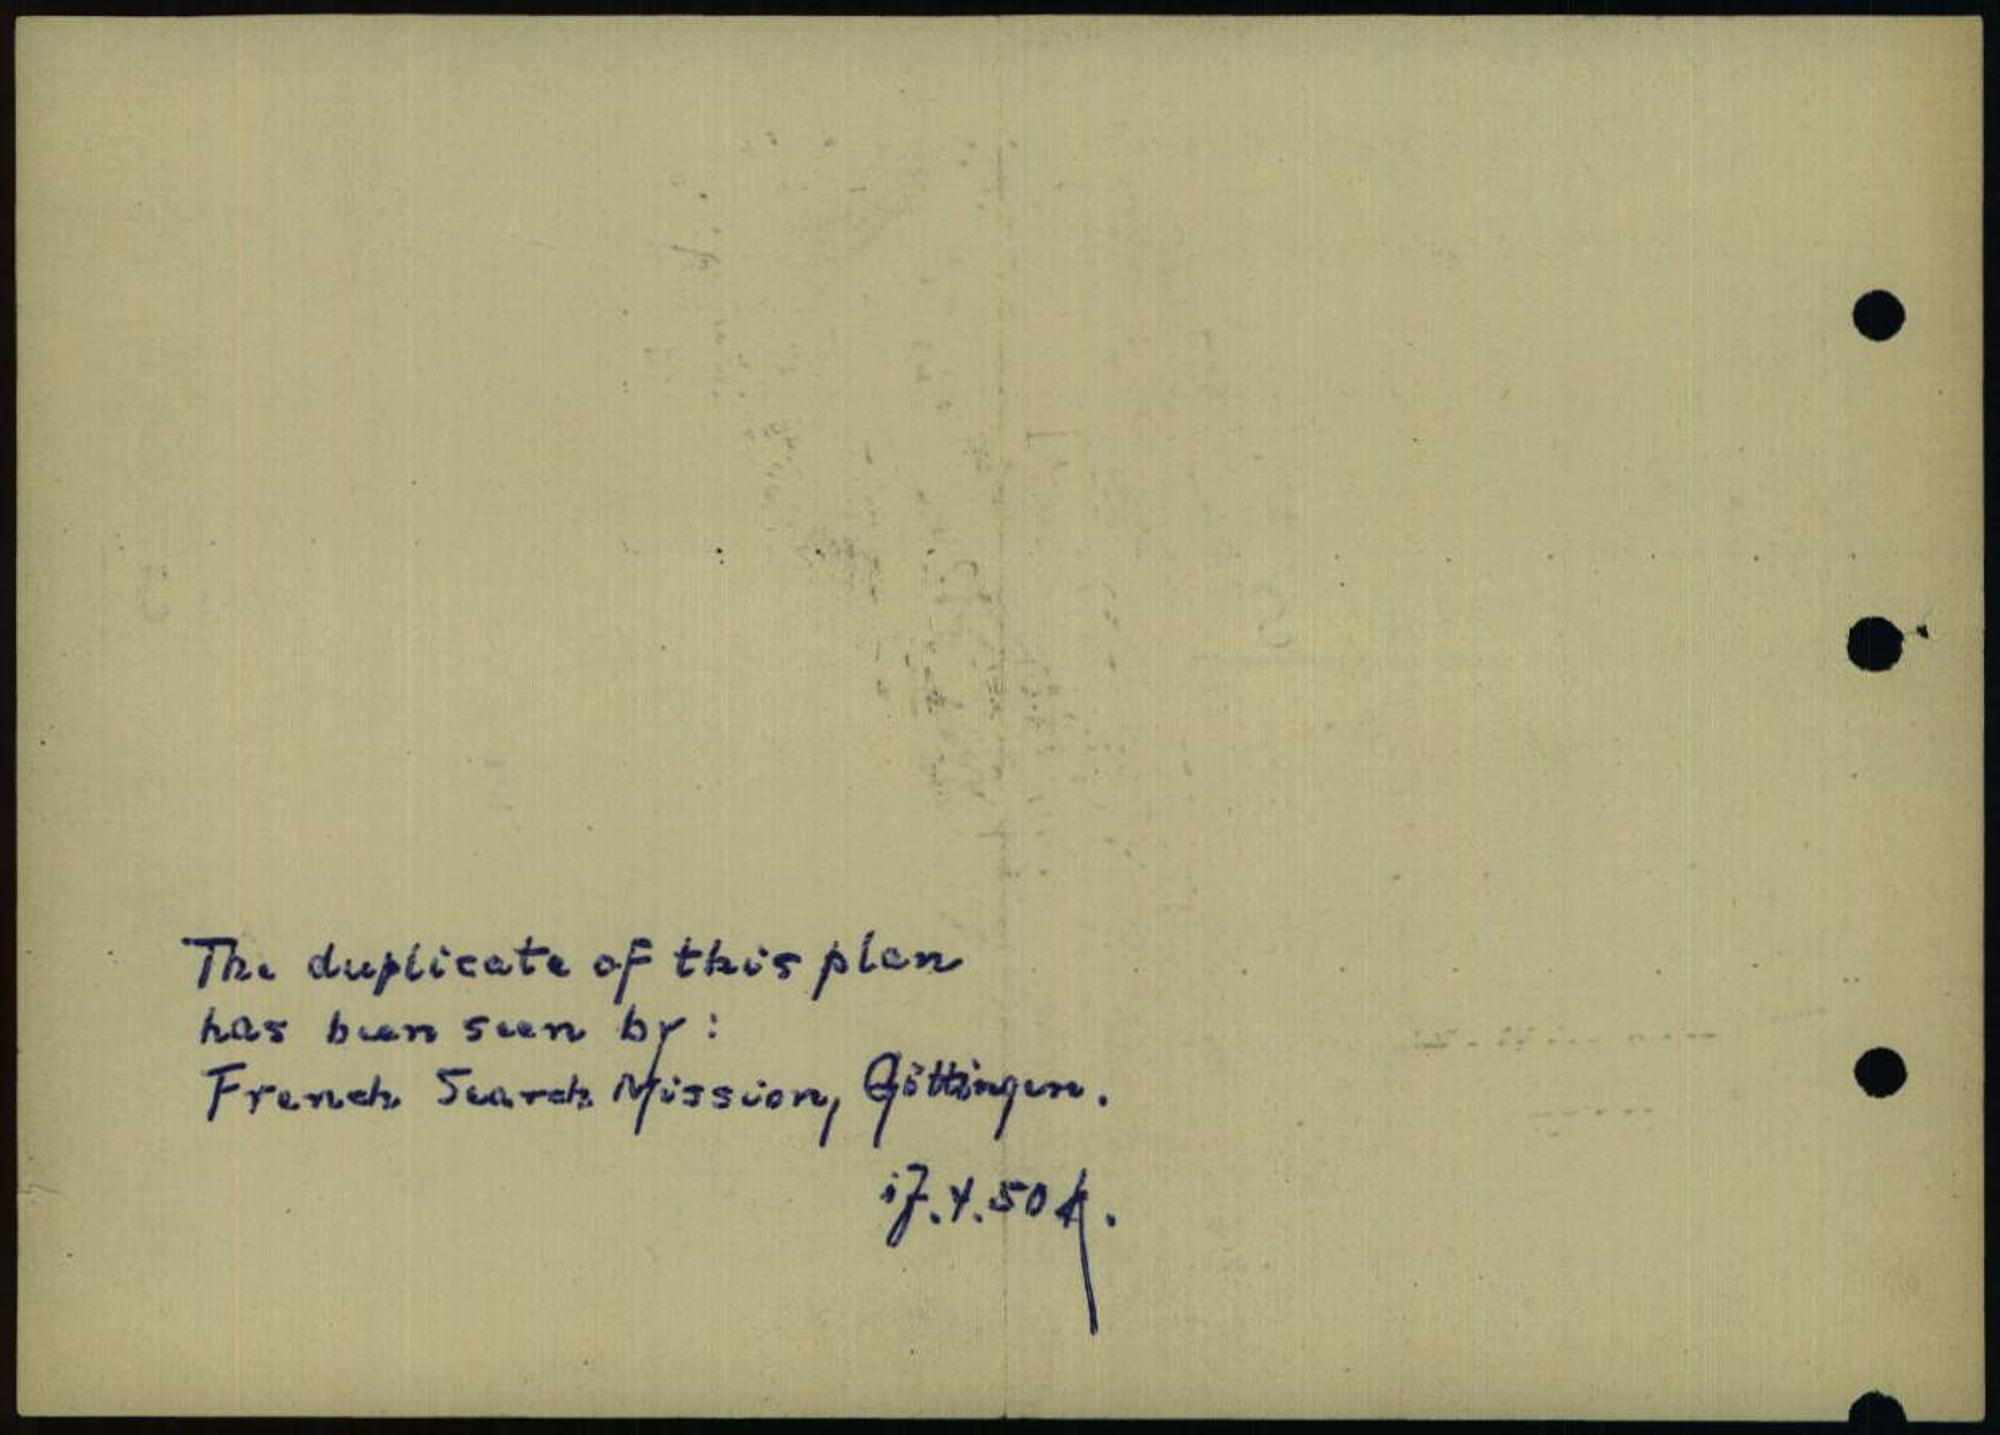 The duplicate of this plan
has been seen by:
French Search Mission, Göttingen.
17.4.50